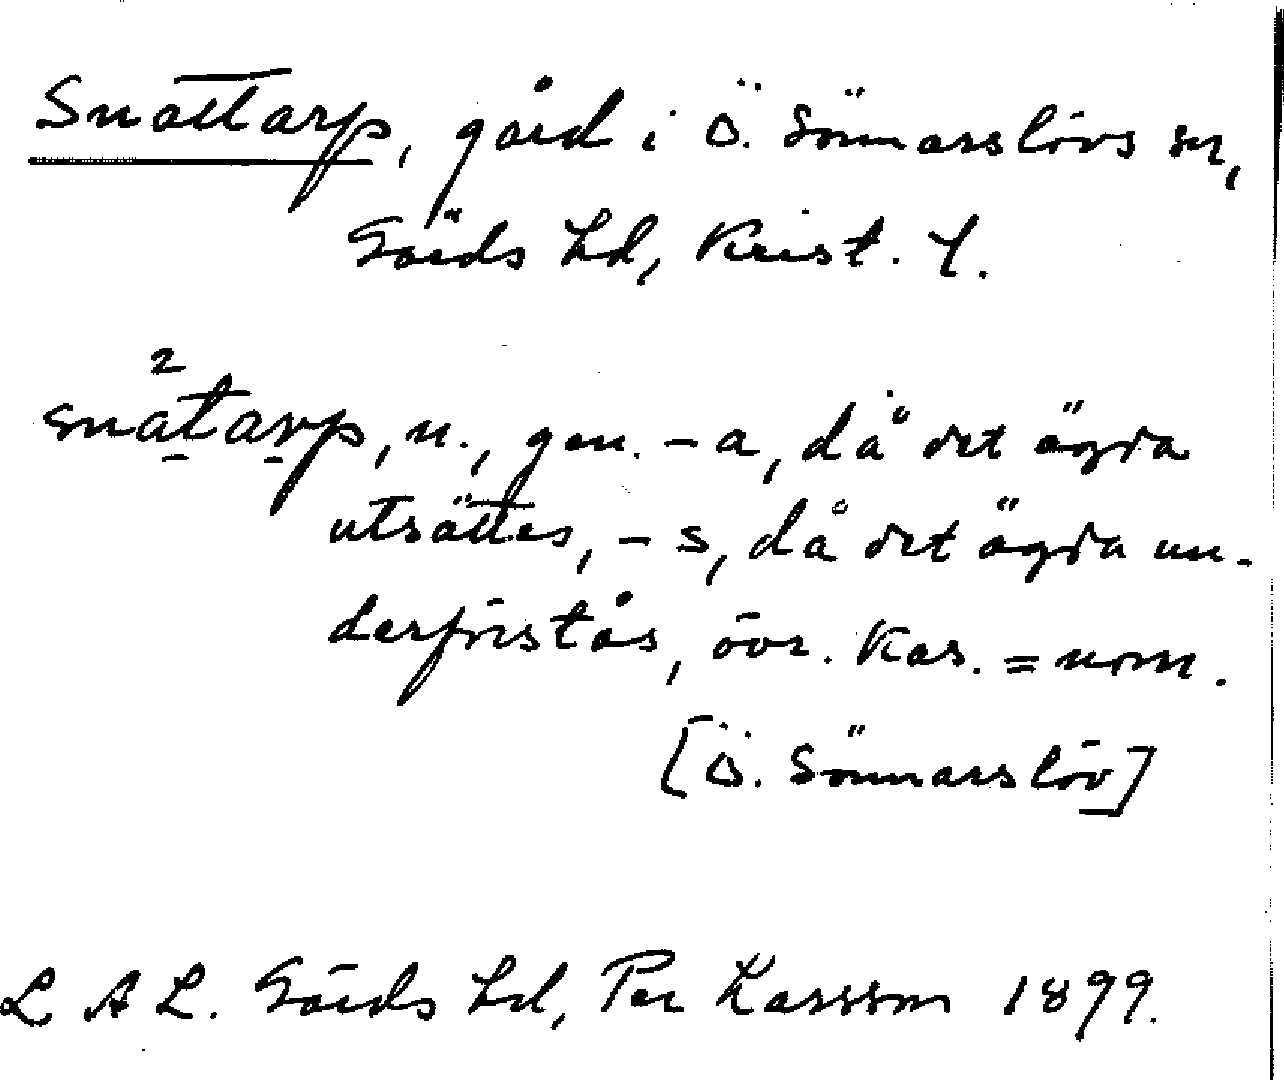 Snattarp, gård i Ö. Sönnarslövs sn,
Gärds hd, Krist. l.
snatarp, n., gen. -a, då det ägda
utsättes, -s, då det ägda un-
derförstås, övr. kas. = nom.
[Ö. Sönnarslöv]
L A L. Gärds hd, Per Kassson 1899.